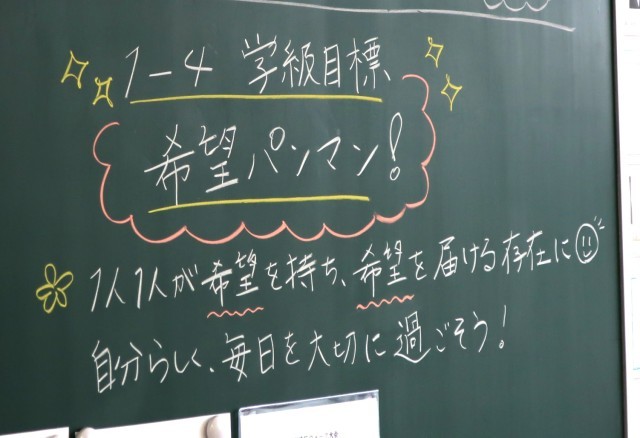 1-4 学級目標
希望パンマン!
1人1人が希望を持ち、希望を届ける存在に
自分らしく、毎日を大切に過ごそう!